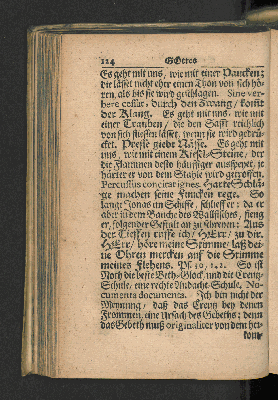 124 GOttes
Es geht mit uns, wie mit einer Paucken;
die lässet nicht eher einen Thon von sich hö-
ren, als bis sie wird geschlagen. Sine ver-
bere cessat, durch den Zwang, komt
der Klang. Es geht mit uns, wie mit
einer Trauben, die den Safft reichlich
von sich fliessen lässet, wenn sie wird gedrü-
cket. Presse giebt Nässe. Es geht mit
uns, wie mit einem Kiesel-Steine, der
die Flammen desto häuffiger ausspeyet, je
härter er von dem Stahle wird getroffen.
Percussus concitat ignes. Harte Schlä-
ge machen seine Funcken rege. So
lange Jonas im Schiffe, schlieff er: da er
aber in dem Bauche des Wallfisches, fieng
er, folgender Gestalt an zu schreyen: Aus
der Tieffen ruffe ich, HErr, zu dir,
HErr, höre meine Stimme, laß dei-
ne Ohren mercken auf die Stimme
meines Flehens. Ps. 130, 1. 2. So ist
Noth die beste Beth-Glock, und die Creutz-
Schule, eine rechte Andacht-Schule. No-
cumenta documenta. Ich bin nicht der
Meynung, daß das Creutz bey denen
Frommen, eine Ursach des Gebeths; denn
das Gebeth muß originaliter von dem her-
kom-